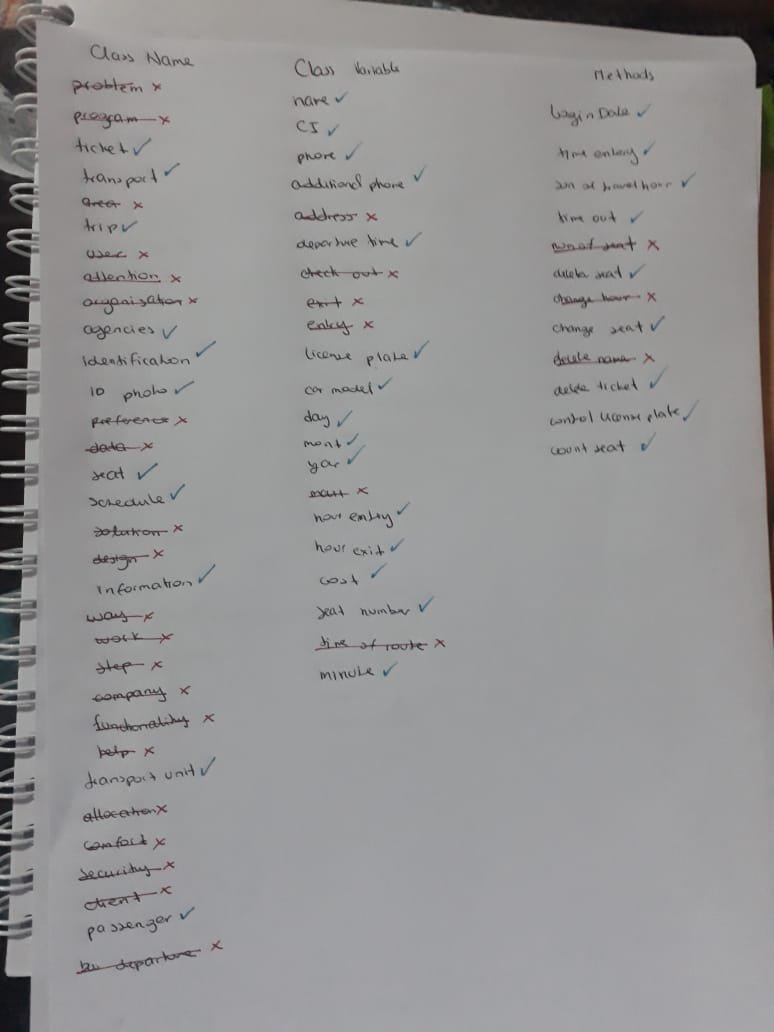 Class Name
problem x
program x
ticket ✓
transport ✓
area x
trip ✓
user x
attention x
organisation x
agencies ✓
identification ✓
ID photo ✓
preference x
data x
seat ✓
schedule ✓
solution x
design x
information ✓
way x
work x
step x
company x
functionality x
help x
transport unit ✓
allocation x
comfort x
security x
client x
passenger ✓
departure x
Class Variable
name ✓
CI ✓
phone ✓
additional phone ✓
address x
departure time ✓
check out x
exit x
entry x
license plate ✓
car model ✓
day ✓
mont ✓
year ✓
x
hour entry ✓
hour exit ✓
cost ✓
seat number ✓
time of route x
minute ✓
Methods
Login Date ✓
time entery ✓
of travel hour ✓
time out ✓
seat x
delete seat ✓
change hour x
change seat ✓
delete name x
delete ticket ✓
control license plate ✓
count seat ✓